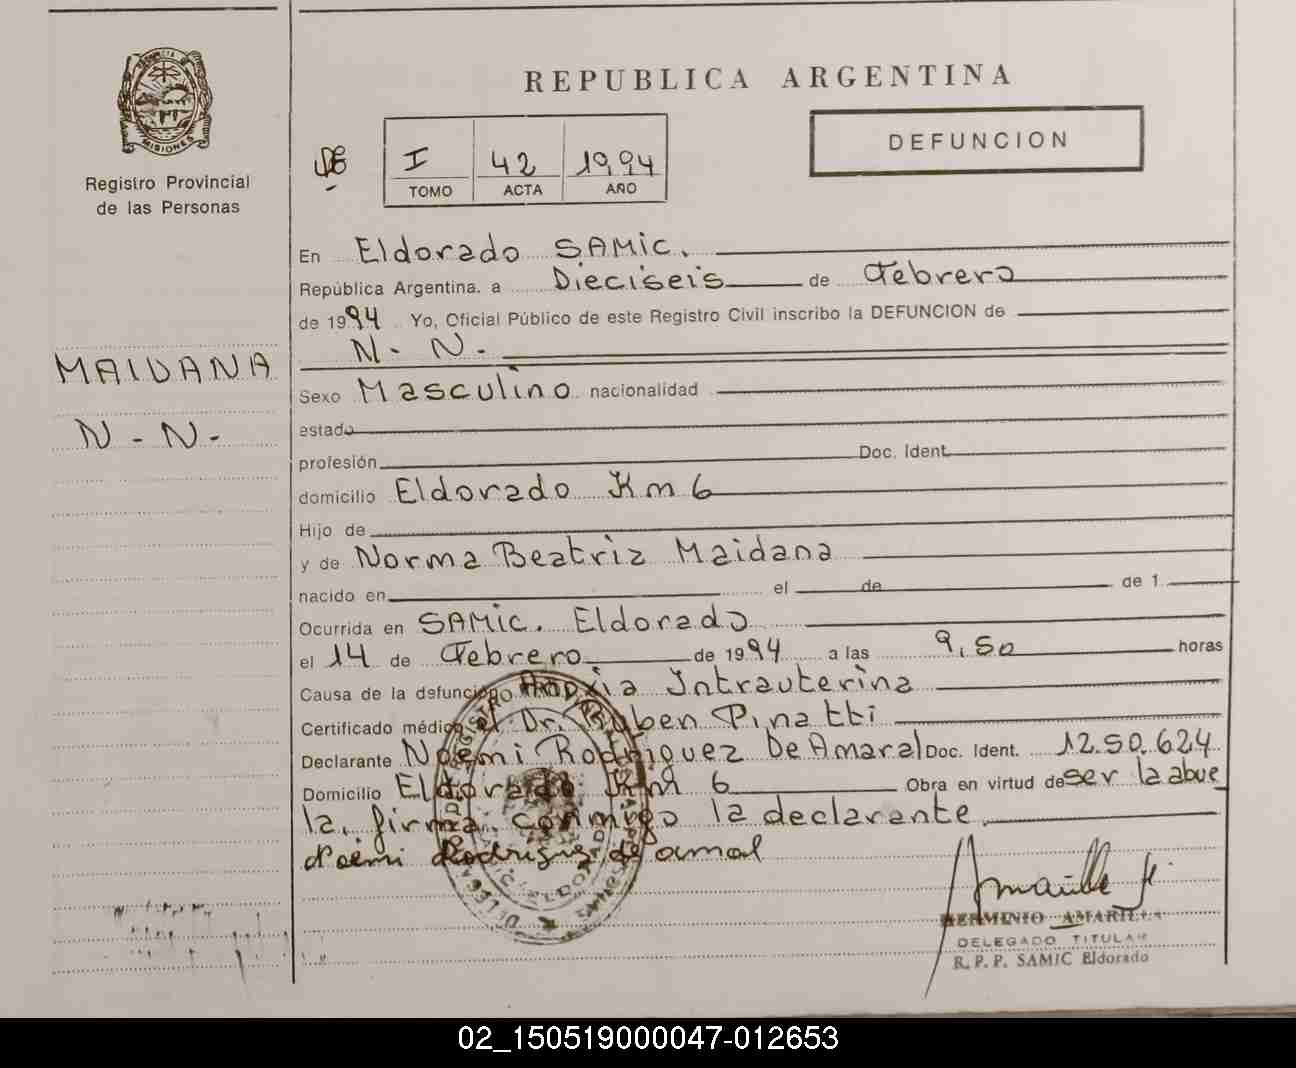 PROVINCIA DE
MISIONES
Registro Provincial
de las Personas
MAIDANA
N - N -
REPUBLICA ARGENTINA
DEFUNCION
I 42 1994
TOMO ACTA AÑO
En Eldorado SAMic.
República Argentina. a Dieciseis de Febrero
de 1994 Yo, Oficial Público de este Registro Civil inscribo la DEFUNCION de
N - N -
Sexo Masculino nacionalidad
estado
profesión Doc. Ident.
domicilio Eldorado Km 6
Hijo de
y de Norma Beatriz Maidana
nacido en el de de 1
Ocurrida en SAMic. Eldorado
el 14 de Febrero de 1994 a las 9,50 horas
Causa de la defunción Anoxia Intrauterina
Certificado médico el Dr. Ruben Pinatti
Declarante Noemi Rodriguez De Amaral Doc. Ident. 12.50.624
Domicilio Eldorado Km 6 Obra en virtud de ser la abue
la. firma conmigo la declarante
Noemi Rodriguez de amaral
HERMINIO AMARILLA
DELEGADO TITULAR
R. P. P. SAMIC Eldorado
02_150519000047-012653